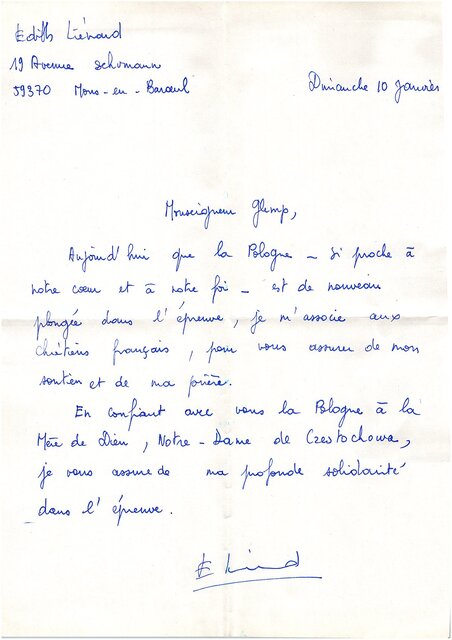 Edith Liénard
19 Avenue Schumann
59370 Mons-en-Baroeul
Dimanche 10 Janvier
Monseigneur Glemp,
Aujourd'hui que la Pologne - si proche à
notre coeur et à notre foi - est de nouveau
plongée dans l'épreuve, je m'associe aux
chrétiens français, pour vous assurer de mon
soutien et de ma prière.
En confiant avec vous la Pologne à la
Mère de Dieu, Notre-Dame de Czestochowa,
je vous assure de ma profonde solidarité
dans l'épreuve.